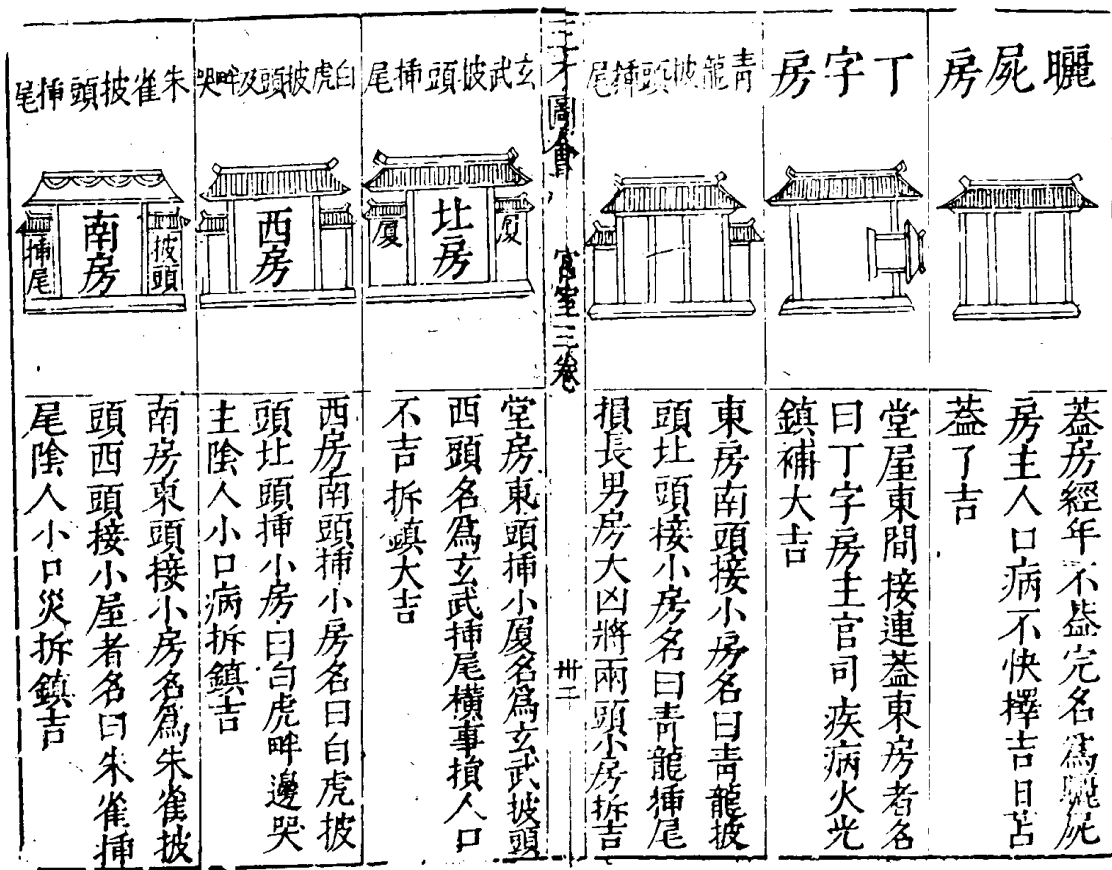 曬屍房
蓋房經年不蓋完名爲曬屍
房主人口病不快擇吉日苫
蓋了吉
丁字房
堂屋東間接連蓋東房者名
曰丁字房主官司疾病火光
鎮補大吉
青龍披頭揷尾
東房南頭接小房名曰青龍披
頭北頭接小房名曰青龍揷尾
損長男房大凶將兩頭小房拆吉
三才圖會
宮室三卷
卅二
玄武披頭揷尾
厦
北房
厦
堂房東頭揷小厦名爲玄武披頭
西頭名爲玄武揷尾橫事損人口
不吉拆鎮大吉
白虎披頭及畔哭
西房
西房南頭揷小房名曰白虎披
頭北頭揷小房曰白虎畔邊哭
主陰人小口病拆鎮吉
朱雀披頭揷尾
披頭
南房
揷尾
南房東頭接小房名爲朱雀披
頭西頭接小屋者名曰朱雀揷
尾陰人小口災拆鎮吉